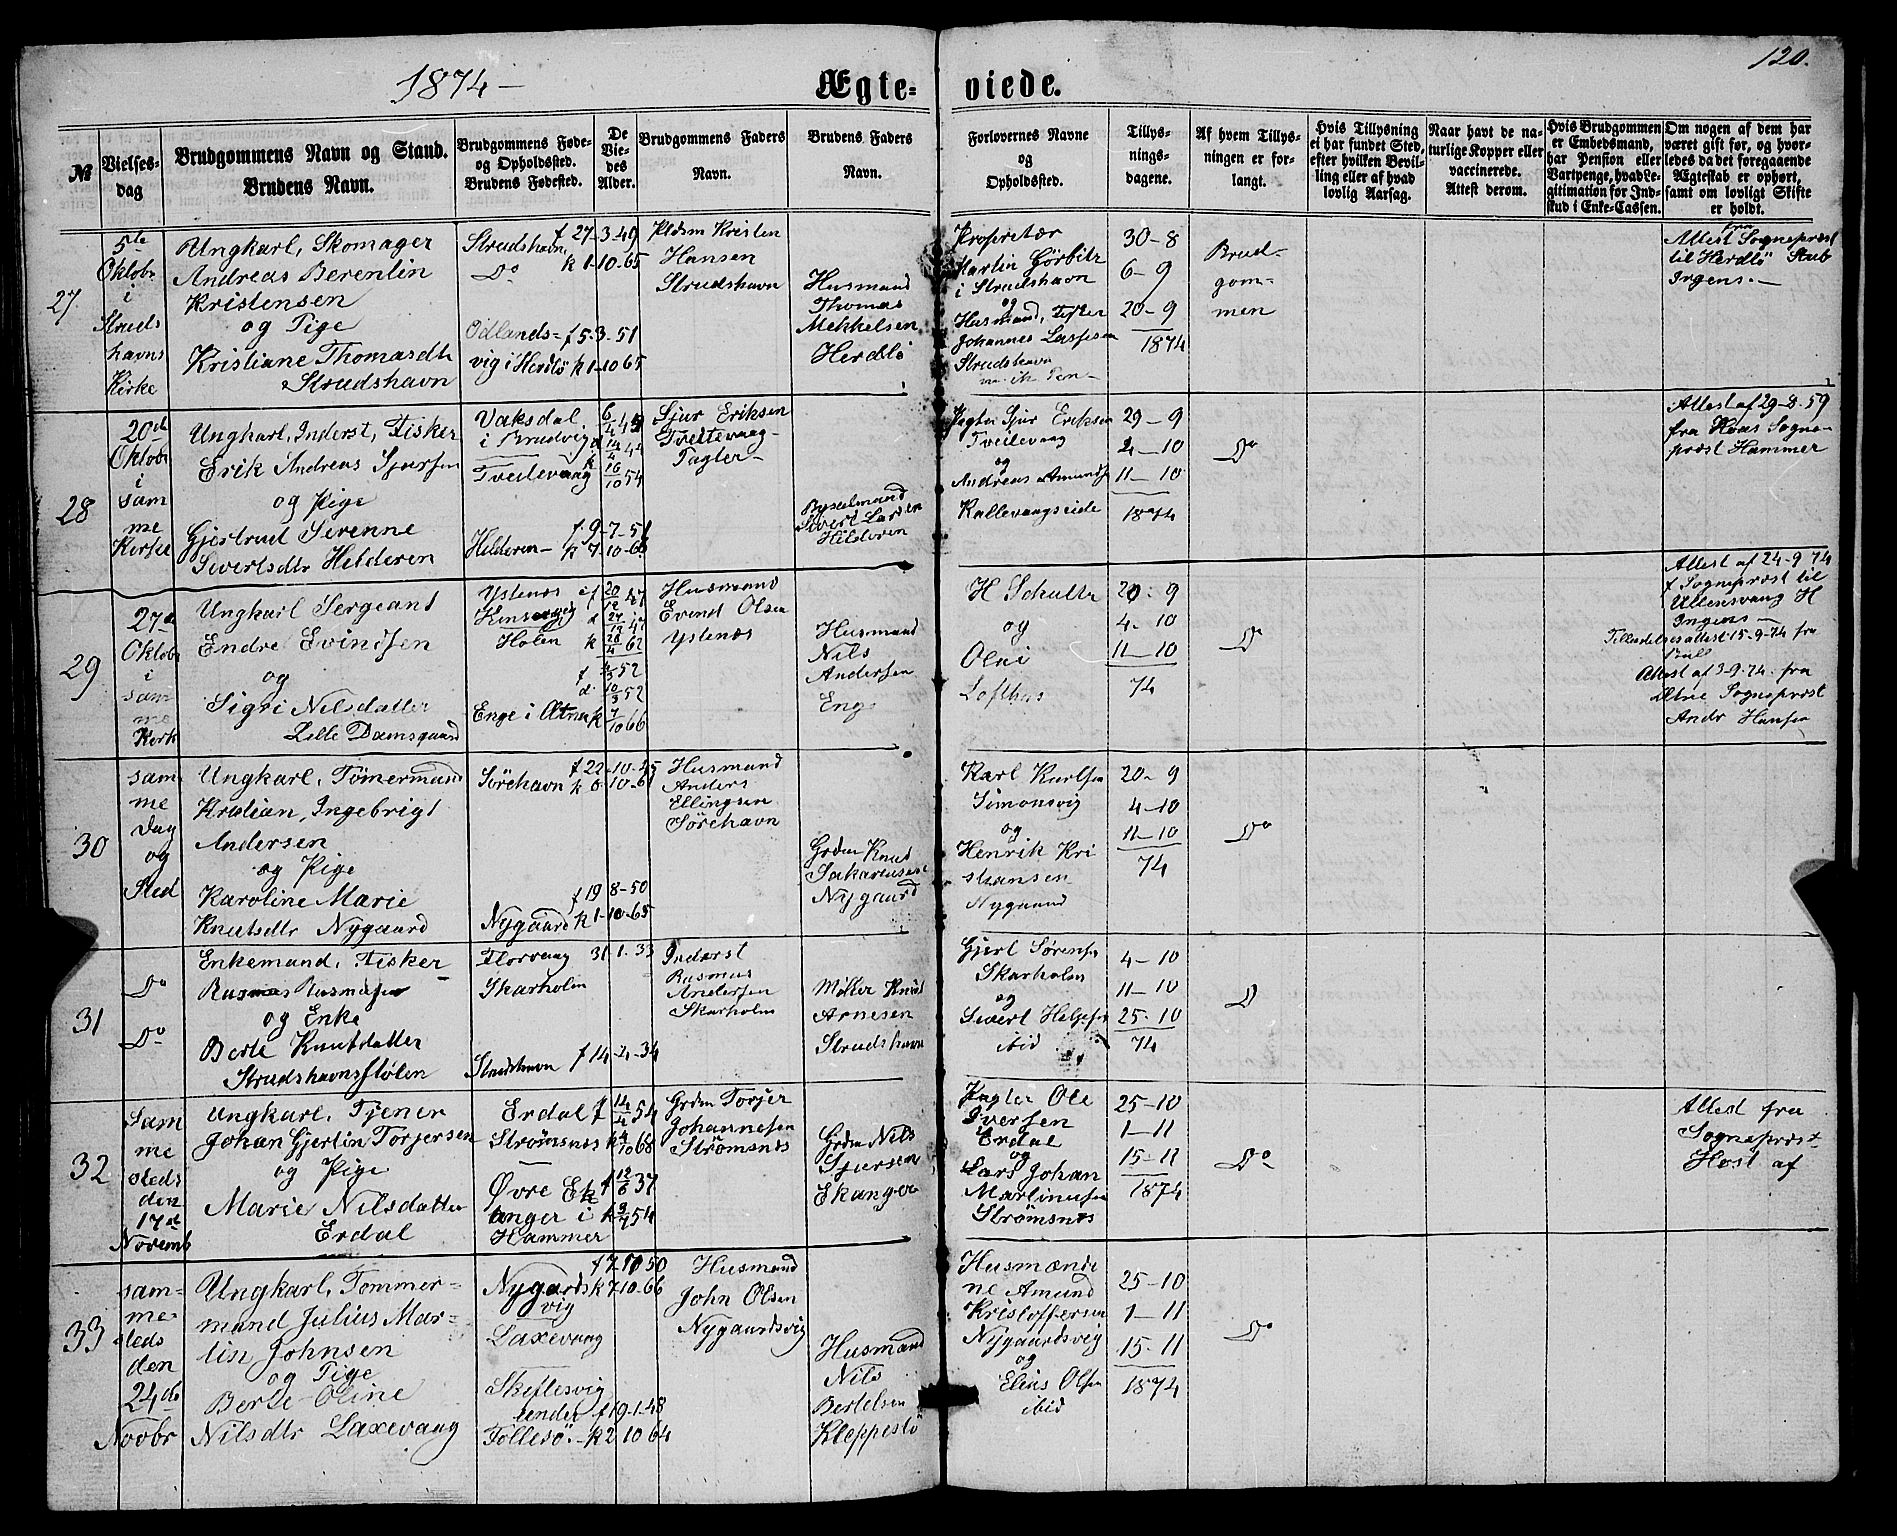 1874 –
Ægte-
viede.
120.
№
Vielses-
dag
Brudgommens Navn og Stand.
Brudens Navn.
Brudgommens Føde-
og Opholdssted.
Brudens Fødested.
De
Vie-
des
Alder.
Brudgommens Faders
Navn.
Brudens Faders
Navn.
Forlovernes Navne
og
Opholdssted.
Tillys-
nings-
dagene.
Af hvem Tillys-
ningen er for-
langt.
Hvis Tillysning
ei har fundet Sted,
efter hvilken Bevil-
ling eller af hvad
lovlig Aarsag.
Naar havt de na-
turlige Kopper eller
vaccinerede.
Attest derom.
Hvis Brudgommen
er Embedsmand,
har Pension eller
Vartpenge, hvad Le-
gitimation for Ind-
skud i Enke-Cassen.
Om nogen af dem har
været gift før, og hvor-
ledes da det foregaaende
Ægteskab er ophørt,
samt om lovligt Skifte
er holdt.
27
5te
Oktobr
i
Struds
havns
Kirke
Ungkarl, Skomager
Andreas Berentin
Kristensen
og Pige
Kristiane Thomasdtr
Strudshavn
Strudshavn f 27-3-49
Do k 1-10-65
Odlands- f 5-3-51
vig i Herdlö k 1-10 65
Pldsm Kristen
Hansen
Strudshavn
Husmand
Thomas
Mekkelsen
Herdlö
Proprietær
Martin Görbitz
i Strudshavn
og
Husmand, Fisker
Johannes Lassesen
Strudshavn
30-8
6-9
20-9
1874
Brud-
gom-
men
Attest fra Sogneprest
til Herdlö
Irgens.–
28
20de
Oktobr
i
sam
me
Kirke
Ungkarl, Inderst, Fisker
Erik Andreas Sjursen
og Pige
Gjertrud Serenne
Sivertsdtr Hilderen
Vaksdal
i Bruvig
Tveitevaag
Hilderen – f 9-7-51
k 7-10-66
Sjur Eriksen
Tveitevaag
Pagter –
Sivert Larsen
Hilderen
Pagter Sjur Eriksen
Tveitevaag
og
Andreas Amundsen
Kallevaagseide
29-9
4-10
11-10
1874
Do
Attest af 29-8-59
fra Hoas Sogne-
prest Hammer
29
27de
Oktobr
i
sam
me
Kirk
Ungkarl Sergeant
Endre Evindsen
og
Sigri Nilsdatter
Lille Damsgaard
Ystenæs
Kinservig
Holen
Enge i Ætne k 7/10 66
Husmand
Evind Olsen
Ystenæs
Husmand
Nils
Andersen
Enge
H Schultz
og
Olai
Lofthus
20-9
4-10
11-10
74
Do
Attest af 24-9 74
f Sogneprest til
Ullensvang H
Irgens –
Tilladelsesattest 15-9-74 fra
Attest af 3-9-74 fra
Ætne Sogneprest
Andr Hansen
30
sam
me
Dag
og
Sted
Ungkarl, Tömermand
Kristian, Ingebrigt
Andersen
og Pige
Karoline Marie
Knutsdtr Nygaard
Sörehavn
Nygaard
f 19 8-50
k 1-10-65
Husmand
Anders
Ellingsen
Sörehavn
Grdm Knud
Sakariassen
Nygaard
Karl Karlsen
Simonsvig
og
Henrik Kri
stiansen
Nygaard
20-9
4-10
11-10
74
Do
31
Do
Do
Enkemand, Fisker
Rasmus Rasmusen
og Enke
Berte Knutdatter
Strudshavnsstølen
Florvaag 31-1-33
Skarholm
Strudshavn f 14-4-34
Inderst
Rasmus
Andersen
Skarholm
Møller Knud
Arnesen
Strudshavn
Gjert Sørensen
Skarholm
og
Sivert Helgesen
ibid
4-10
11-10
25-10
74
D
32
Sam
me
steds
den
17de
Novemb
Ungkarl, Tjener
Johan Gjertin Torjersen
og Pige
Marie Nilsdatter
Erdal
Erdal f 14/4 54
Strömsnes k 4/10 68
Øvre Ek
anger i
Hammer
Grdm Torjer
Johannesen
Strömsnes
Grdm Nils
Sjursen
Ekanger
Pagter Ole
Iversen
Erdal
og
Lars Johan
Martinusen
Strömsnes
25-10
1-11
15-11
1874
Do
Attest fra
Sogneprest
Høst af
33
sam-
me-
steds
den
24de
Novbr
Ungkarl, Tømmer-
mand Julius Mar-
tin Johnsen
og Pige
Berte Oline
Nilsdtr Laxevaag
Nygards k 7-10-66
vig
Laxevaag
Skiftesvig
under f 19-1-48
Follesö. – k 2 10 64
Husmand
John Olsen
Nygaardsvig
Husmand
Nils
Bertelsen
Kleppestö
Husmænde
ne Amund
Kristoffersen
Nygaardsvig
og
Elias Olsen
ibid
25-10
1-11
15-11
1874
Do